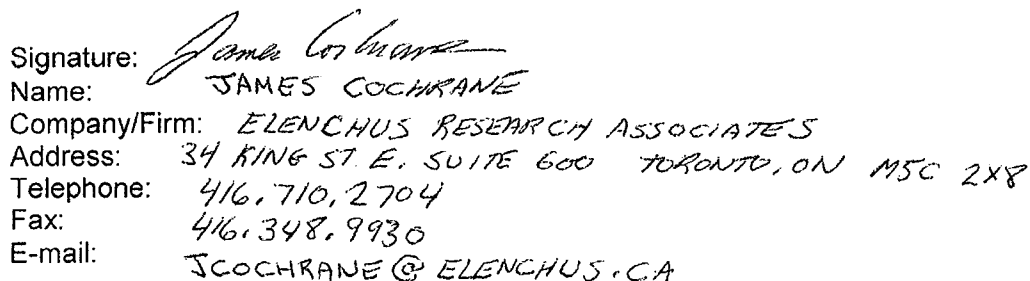 Signature: James Cochrane
Name: JAMES COCHRANE
Company/Firm: ELENCHUS RESEARCH ASSOCIATES
Address: 34 KING ST. E. SUITE 600 TORONTO, ON M5C 2X8
Telephone: 416.710.2704
Fax: 416.348.9930
E-mail: JCOCHRANE@ELENCHUS.CA